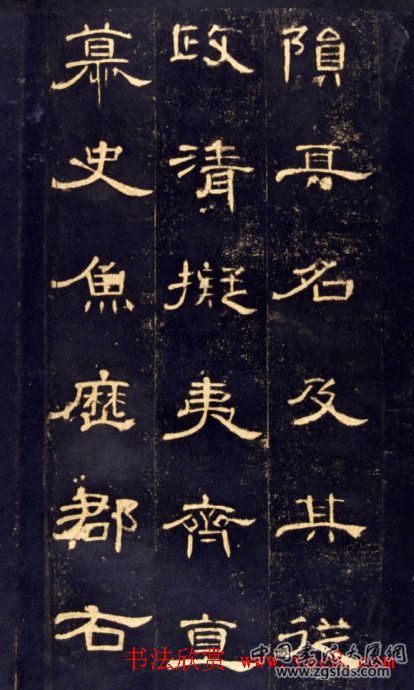 隕其名及其從
政清擬夷齊直
慕史魚歷郡右
书法欣赏
中国书法大展网
www.zgsfds.com